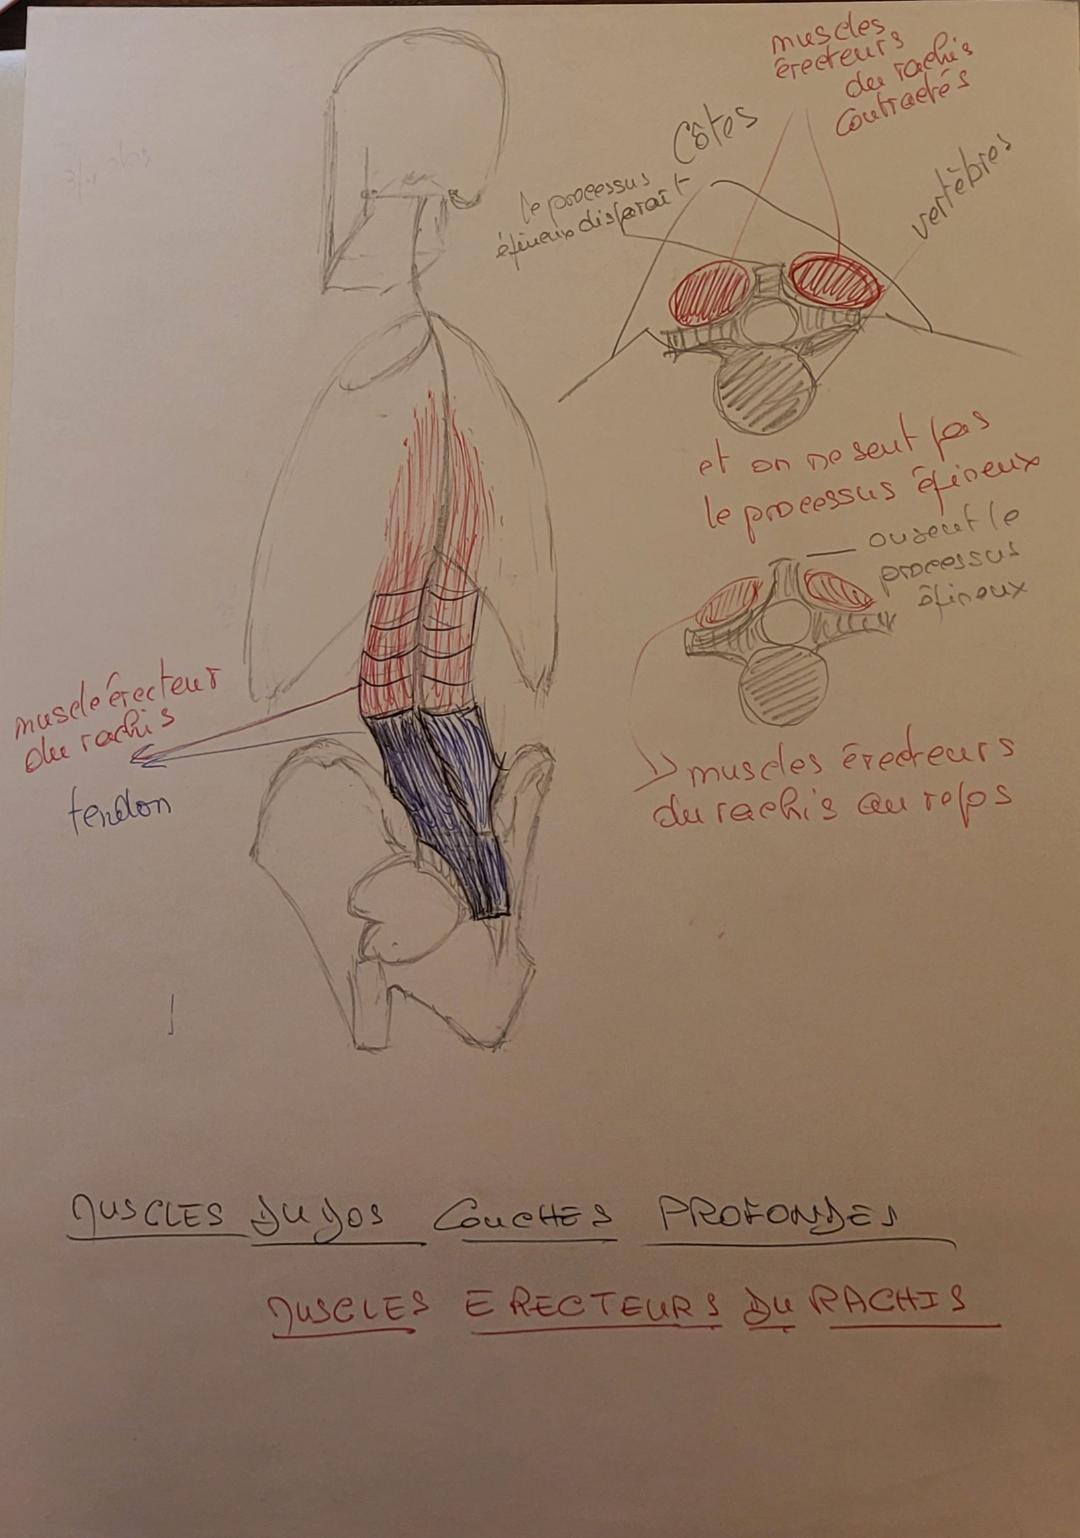 muscles
érecteurs
du rachis
contractés
Côtes
le processus
épineux disparaît
vertèbres
et on ne sent pas
le processus épineux
on sent le
processus
épineux
muscle érecteur
du rachis
tendon
muscles érecteurs
du rachis au repos
MUSCLES DU DOS COUCHES PROFONDES
MUSCLES ERECTEURS DU RACHIS